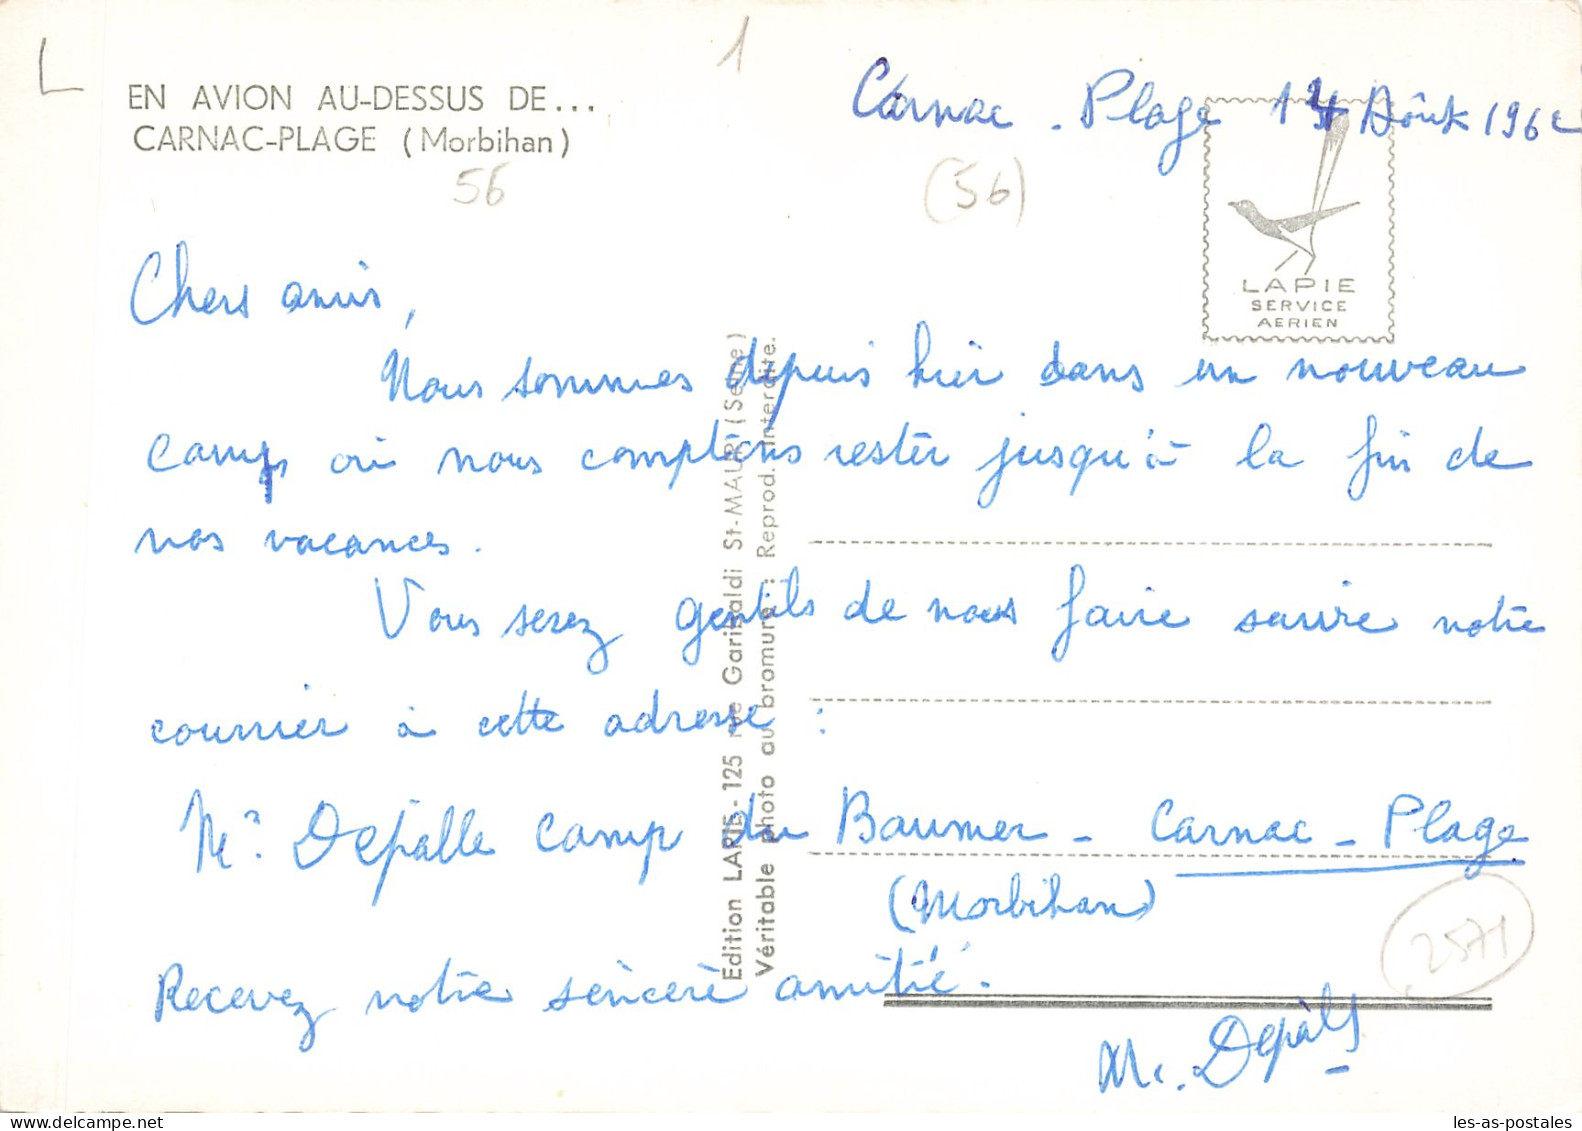 L
1
EN AVION AU-DESSUS DE...
CARNAC-PLAGE (Morbihan)
56
Carnac - Plage Août 196
(56)
LAPIE
SERVICE
AERIEN
Chers amis,
Nous sommes depuis hier dans un nouveau
camp où nous comptons rester jusqu'à la fin de
nos vacances.
Vous serez gentils de nous faire suivre notre
courrier à cette adresse :
Mr Depalle camp du Baumer - Carnac - Plage
(Morbihan)
Recevez notre sincère amitié.
2571
Edition LAPIE - 125 rue Garibaldi St-MAUR (Seine)
Véritable photo au bromure : Reprod. interdite.
les-as-postales